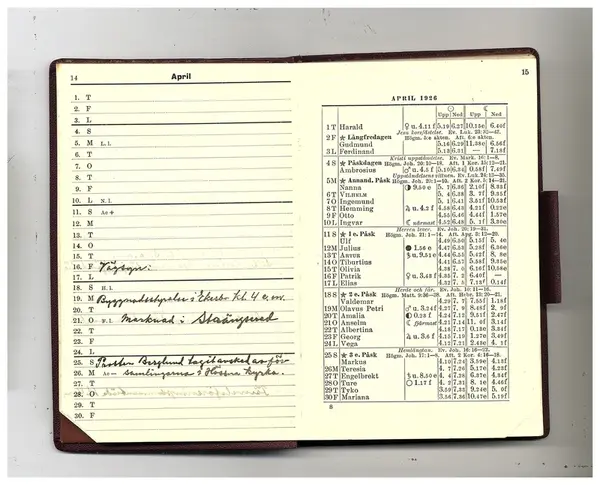 14
April
1. T
2. F
3. L
4. S
5. M L. I.
6. T
7. O
8. T
9. F
10. L N. I.
11. S Ac+
12. M
13. T
14. O
15. T
16. F Vägsyn.
17. L
18. S H.I.
19. M Byggnadsstyrelse i Ekerbo Kl. 4 e.m.
20. T
21. O F.I. Marknad i Stenängsered
22. T
23. F
24. L
25. S Prosten Berglund tagit avsked av för-
26. M Ac— samlingarna i Hössna kyrka.
27. T
28. O
29. T
30. F
15
APRIL 1926
Upp Ned Upp Ned
1 T Harald ♀ u. 4.11 f 5.19 6.27 10.15e 6.40f
Jesu korsfästelse. Ev. Luk. 23: 32—43.
2 F ★ Långfredagen Högm. 5:e akten. Aft. 6:e akten.
Gudmund 5.16 6.29 11.38e 6.56f
3 L Ferdinand 5.13 6.31 — 7.18f
Kristi uppståndelse. Ev. Mark. 16: 1—8.
4 S ★ Påskdagen Högm. Joh. 20: 10—18. Aft. 1 Kor. 15: 12—21.
Ambrosius ♂ u. 4.5 f 5.10 6.34 0.58f 7.49f
Uppståndelsens vittnen. Ev. Luk. 24: 13—35.
5 M ★ Annand. Påsk
Nanna 9.50 e 5. 7 6.36 2.10f 8.35f
6 T VILHELM 5. 4 6.38 3. 7f 9.35f
7 O Ingemund 5. 1 6.41 3.51f 10.53f
8 T Hemming 4.58 6.43 4.21f 0.22e
9 F Otto 4.55 6.46 4.44f 1.57e
10 L Ingvar närmast 4.52 6.48 5. 1f 3.30e
Herrens lever. Ev. Joh. 20: 19—31.
11 S ★ 1 e. Påsk Högm. Joh. 21: 1—14. Aft. Apg. 3: 12—20.
Ulf 4.49 6.50 5.15f 5. 4e
12 M Julius ● 1.56 e 4.47 6.53 5.28f 6.36e
13 T Aarva 4.44 6.55 5.42f 8. 8e
14 O Tiburtius 4.41 6.57 5.58f 9.35e
15 T Olivia 4.38 7. 0 6.16f 10.58e
16 F Patrik 4.35 7. 2 6.40f —
17 L Elias 4.32 7. 5 7.13f 0.14f
Herde och får.
18 S ★ 2 e. Påsk Högm. Matt. 9: 36—38.
Valdemar 4.29 7. 7 7.55f 1.18f
19 M Olavus Petri 4.27 7. 9 8.48f 2. 9f
20 T Amalia 0.23 f 4.24 7.12 9.51f 2.47f
21 O Anselm fjärmast 4.21 7.14 11. 0f 3.14f
22 T Albertina 4.18 7.17 0.13e 3.34f
23 F Georg 4.15 7.19 1.27e 3.49f
24 L Vega 4.12 7.21 2.40e 4. 1f
Hemlängtan. Ev. Joh. 16: 16—22.
25 S ★ 3 e. Påsk Högm. Joh. 17: 1—8. Aft. 2 Kor. 4: 16—18.
Markus 4.10 7.24 3.58e 4.13f
26 M Teresia 4. 7 7.26 5.17e 4.23f
27 T Engelbrekt 4. 4 7.28 6.37e 4.34f
28 O Ture 1.17 f 4. 2 7.31 8. 1e 4.46f
29 T Tyko 3.59 7.33 9.24e 5. 0f
30 F Mariana 3.56 7.36 10.47e 5.19f
8